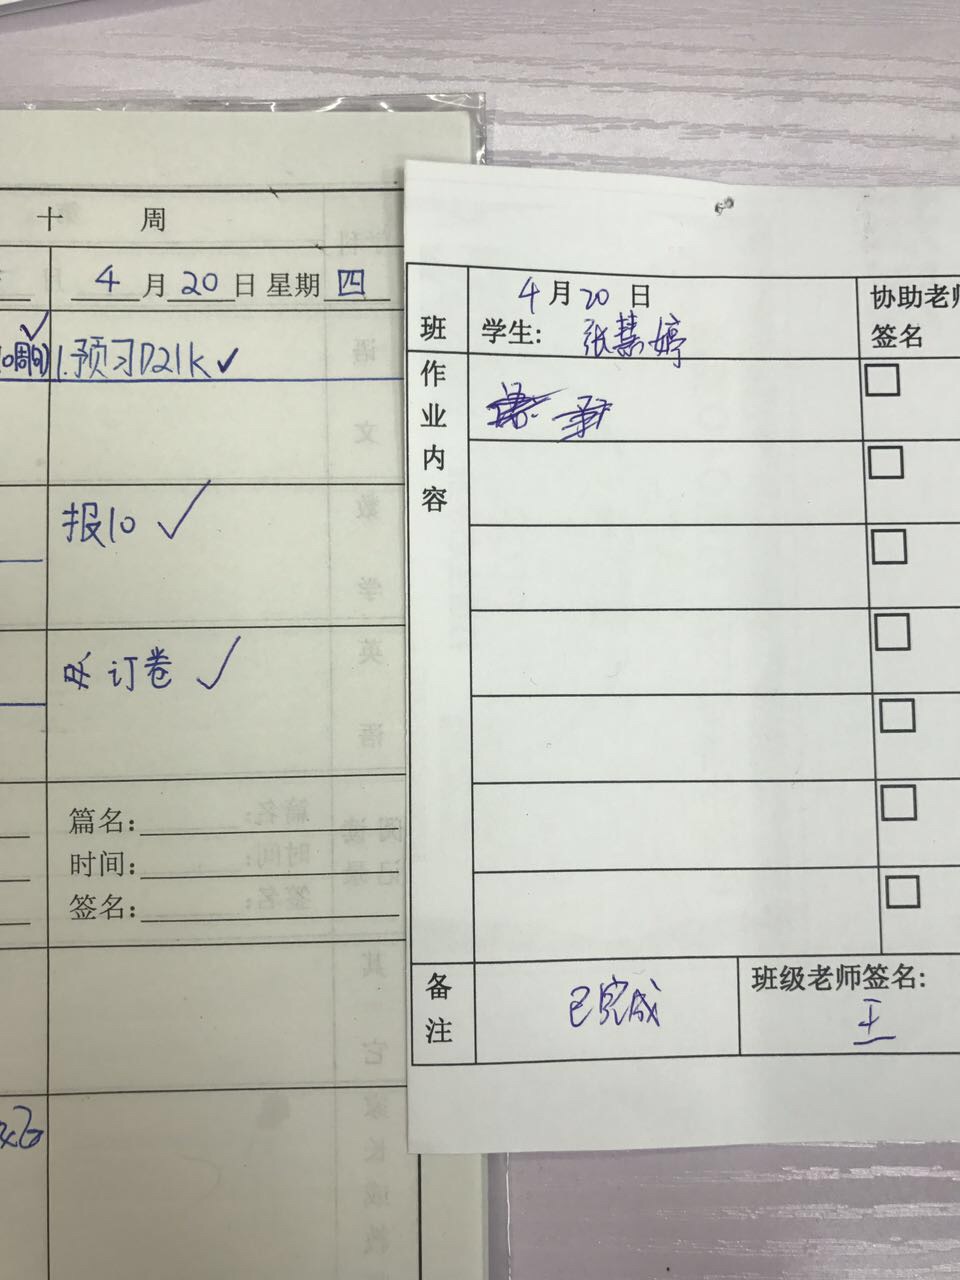 十 周
4月20日 星期四
1.预习P21k
报10
订卷
篇名:
时间:
签名:
班
4月20日
学生: 张慧婷
协助老师
签名
作业内容
备注
已完成
班级老师签名:
王